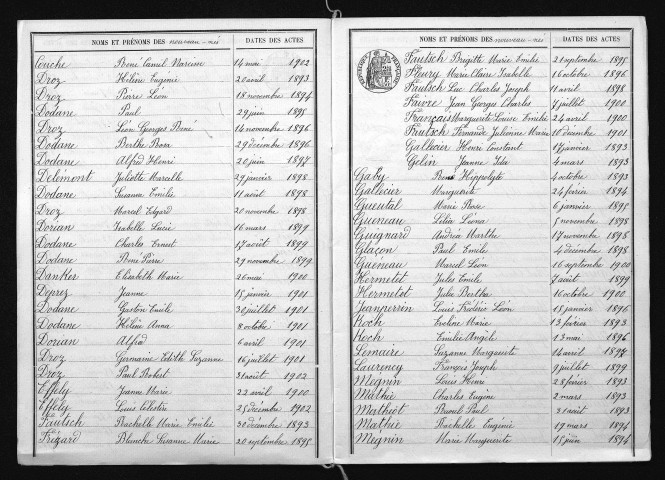 NOMS ET PRÉNOMS DES nouveau-nés DATES DES ACTES
Couche René Camil Narcisse 14 mai 1902
Droz Hélène Eugénie 20 avril 1893
Droz Pierre Léon 18 novembre 1894
Dodane Paul 29 juin 1895
Droz Léon Georges René 14 novembre 1896
Dodane Berthe Rosa 29 décembre 1896
Dodane Alfred Henri 20 juin 1897
Delémont Juliette Marcelle 29 janvier 1898
Dodane Susanne Emilie 11 août 1898
Droz Marcel Edgard 20 novembre 1898
Dorian Isabelle Lucie 16 mars 1899
Dodane Charles Ernest 17 août 1899
Dodane René Pierre 29 novembre 1899
Dankler Elisabeth Marie 26 mai 1900
Deprez Jeanne 15 janvier 1901
Dodane Gaston Emile 30 juillet 1901
Dodane Hélène Anna 8 octobre 1901
Dorian Alfred 6 avril 1901
Droz Germaine Edith Suzanne 16 juillet 1901
Droz Paul Robert 31 août 1902
Effely Jeanne Marie 22 avril 1900
Effely Louis Célestin 25 décembre 1902
Fautsch Rachelle Marie Emilie 31 décembre 1893
Frézard Blanche Susanne Marie 20 septembre 1895
NOMS ET PRÉNOMS DES nouveau-nés DATES DES ACTES
Fautsch Brigitte Marie Emilie 21 septembre 1895
Fleury Marie Claire Isabelle 16 octobre 1896
Fautsch Luc Charles Joseph 11 avril 1898
Faivre Jean Georges Charles 7 juillet 1900
Français Marguerite Louise Emilie 24 avril 1900
Fautsch Fernande Julienne Marie 10 décembre 1901
Gallecier Henri Constant 17 janvier 1893
Gelin Jeanne Ida 4 mars 1893
Gaby René Hippolyte 4 octobre 1893
Gallecier Marguerite 24 février 1894
Gueutal Marie Rose 6 janvier 1895
Gueneau Lélia Léona 5 novembre 1898
Guignard Andréa Marthe 17 novembre 1898
Glaçon Paul Emile 4 décembre 1898
Gueneau Marcel Léon 16 septembre 1900
Hermelot Jules Emile 7 août 1899
Hermelot Julie Bertha 16 octobre 1900
Jeanperrin Louis Frédéric Léon 18 janvier 1896
Koch Eveline Marie 13 février 1893
Koch Emilie Angèle 13 mai 1896
Lemaire Suzanne Marguerite 14 avril 1897
Laurency François Joseph 9 juillet 1899
Megnin Louis Henri 28 février 1893
Mathie Charles Eugène 2 mars 1893
Mathiot Paul 31 août 1893
Mathie Rachelle Eugénie 19 mars 1894
Megnin Marie Marguerite 15 juin 1894